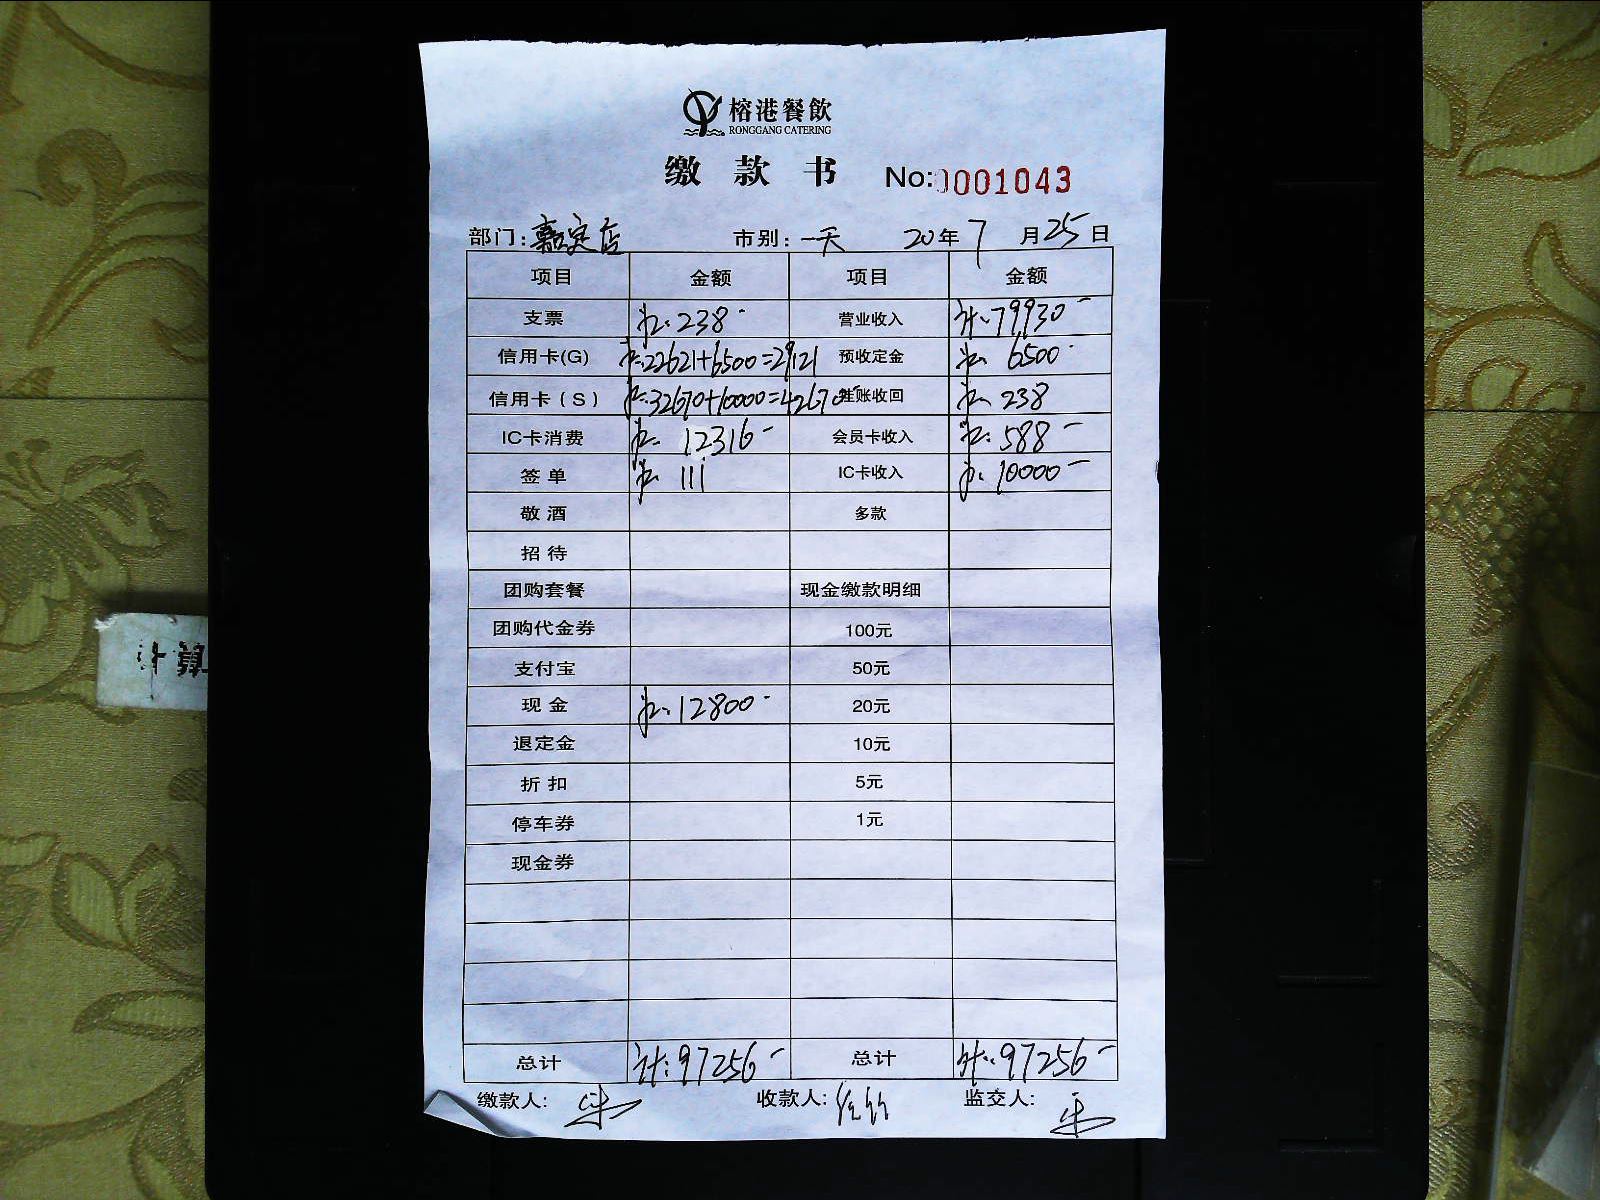 榕港餐飲
RONGGANG CATERING
缴款书 No:0001043
部门:嘉定店 市别:一天 20年7月25日
项目 金额 项目 金额
支票 238- 营业收入 计:79930-
信用卡(G) 22621+6500=29121 预收定金 6500-
信用卡(S) 32670+10000=42670- 挂账收回 238
IC卡消费 12316- 会员卡收入 588-
签单 111 IC卡收入 10000-
敬酒 多款
招待
团购套餐 现金缴款明细
团购代金券 100元
支付宝 50元
现金 12800- 20元
退定金 10元
折扣 5元
停车券 1元
现金券
总计 计:97256- 总计 计:97256-
缴款人: 收款人: 监交人:
计算